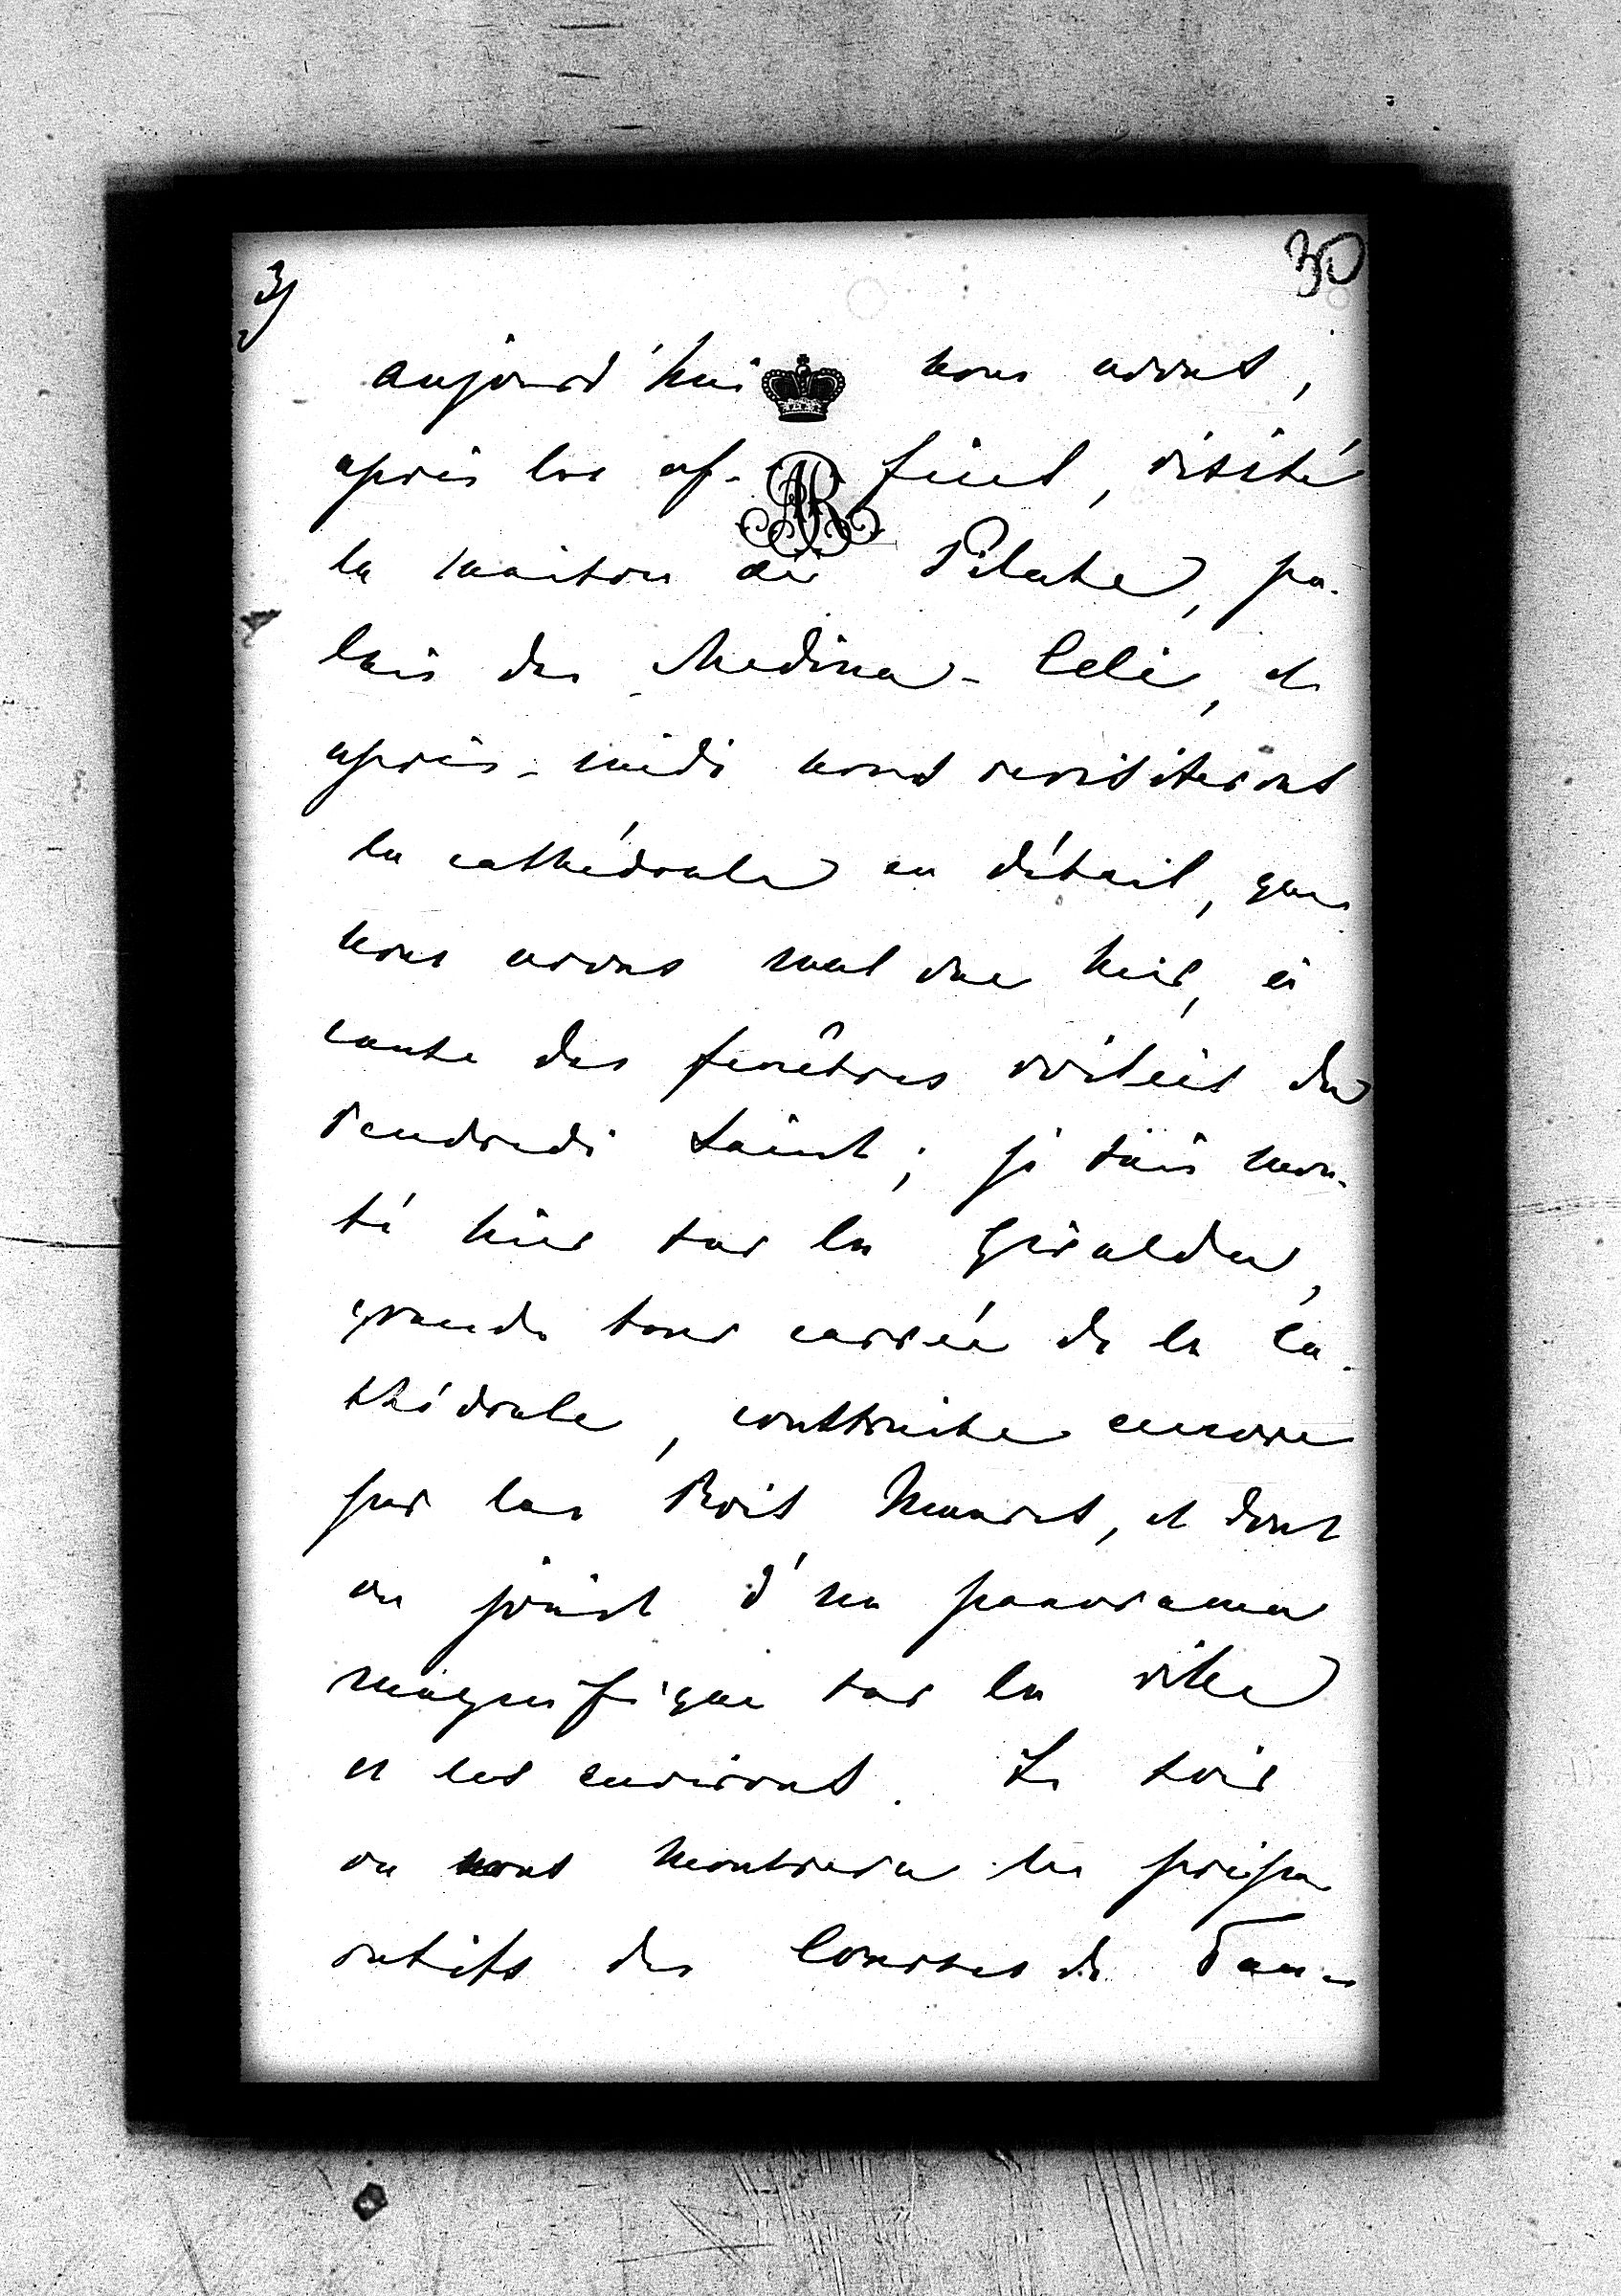 3)
30
aujourd'hui nous avons,
après les of-fices, visité
la maison de Pilate, pa-
lais des Medina-Celi, et
après-midi nous revisiterons
la cathédrale en détail, que
nous avons mal vue hier, à
cause des fenêtres voilées du
Vendredi Saint; je suis mon-
té hier sur la Giralda,
grande tour carrée de la Ca-
thédrale, construite encore
par les Rois Maures, et dont
on jouit d'un panorama
magnifique sur la ville
et les environs. Le soir
on nous montrera les prépa
ratifs des Courses de Tau-